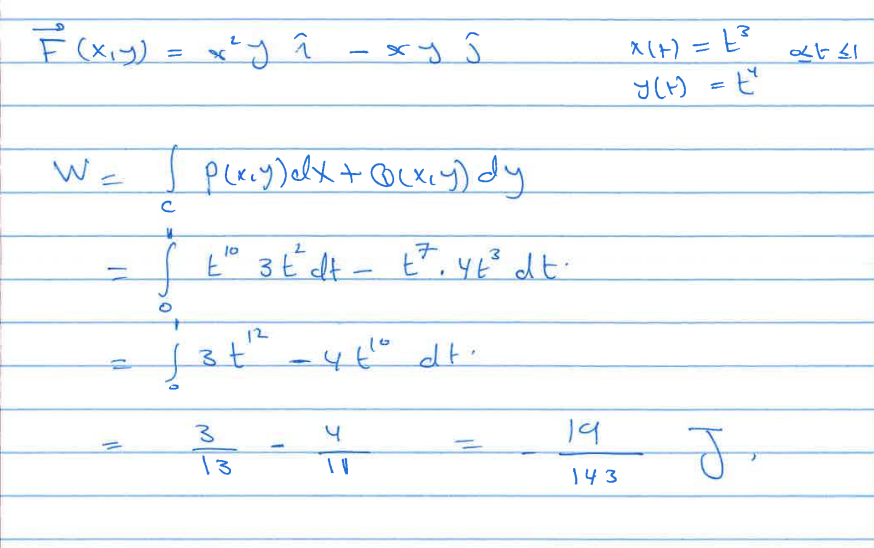 F⃗(x,y) = x²y î - xy ĵ x(t) = t³ 0≤t≤1
y(t) = t⁴
W = ∫_C P(x,y)dx + Q(x,y)dy
= ∫₀¹ t¹⁰ 3t² dt - t⁷. 4t³ dt.
= ∫₀¹ 3t¹² - 4t¹⁰ dt.
= 3/13 - 4/11 = -19/143 J.